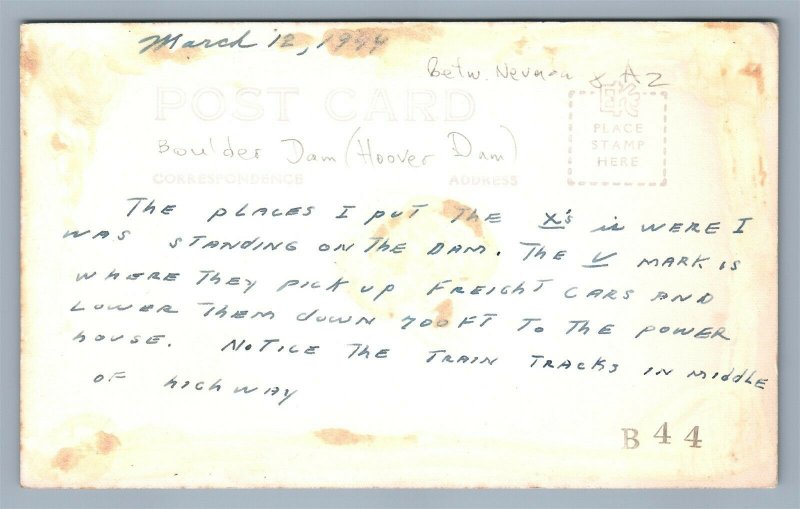 March 12, 1944
Betw. Nevada & AZ
POST CARD
EKC
PLACE
STAMP
HERE
Boulder Dam (Hoover Dam)
CORRESPONDENCE
ADDRESS
THE PLACES I PUT THE X's is WERE I
WAS STANDING ON THE DAM. THE V MARK IS
WHERE THEY PICK UP FREIGHT CARS AND
LOWER THEM DOWN 700FT TO THE POWER
HOUSE. NOTICE THE TRAIN TRACKS IN MIDDLE
OF HIGHWAY
B 4 4